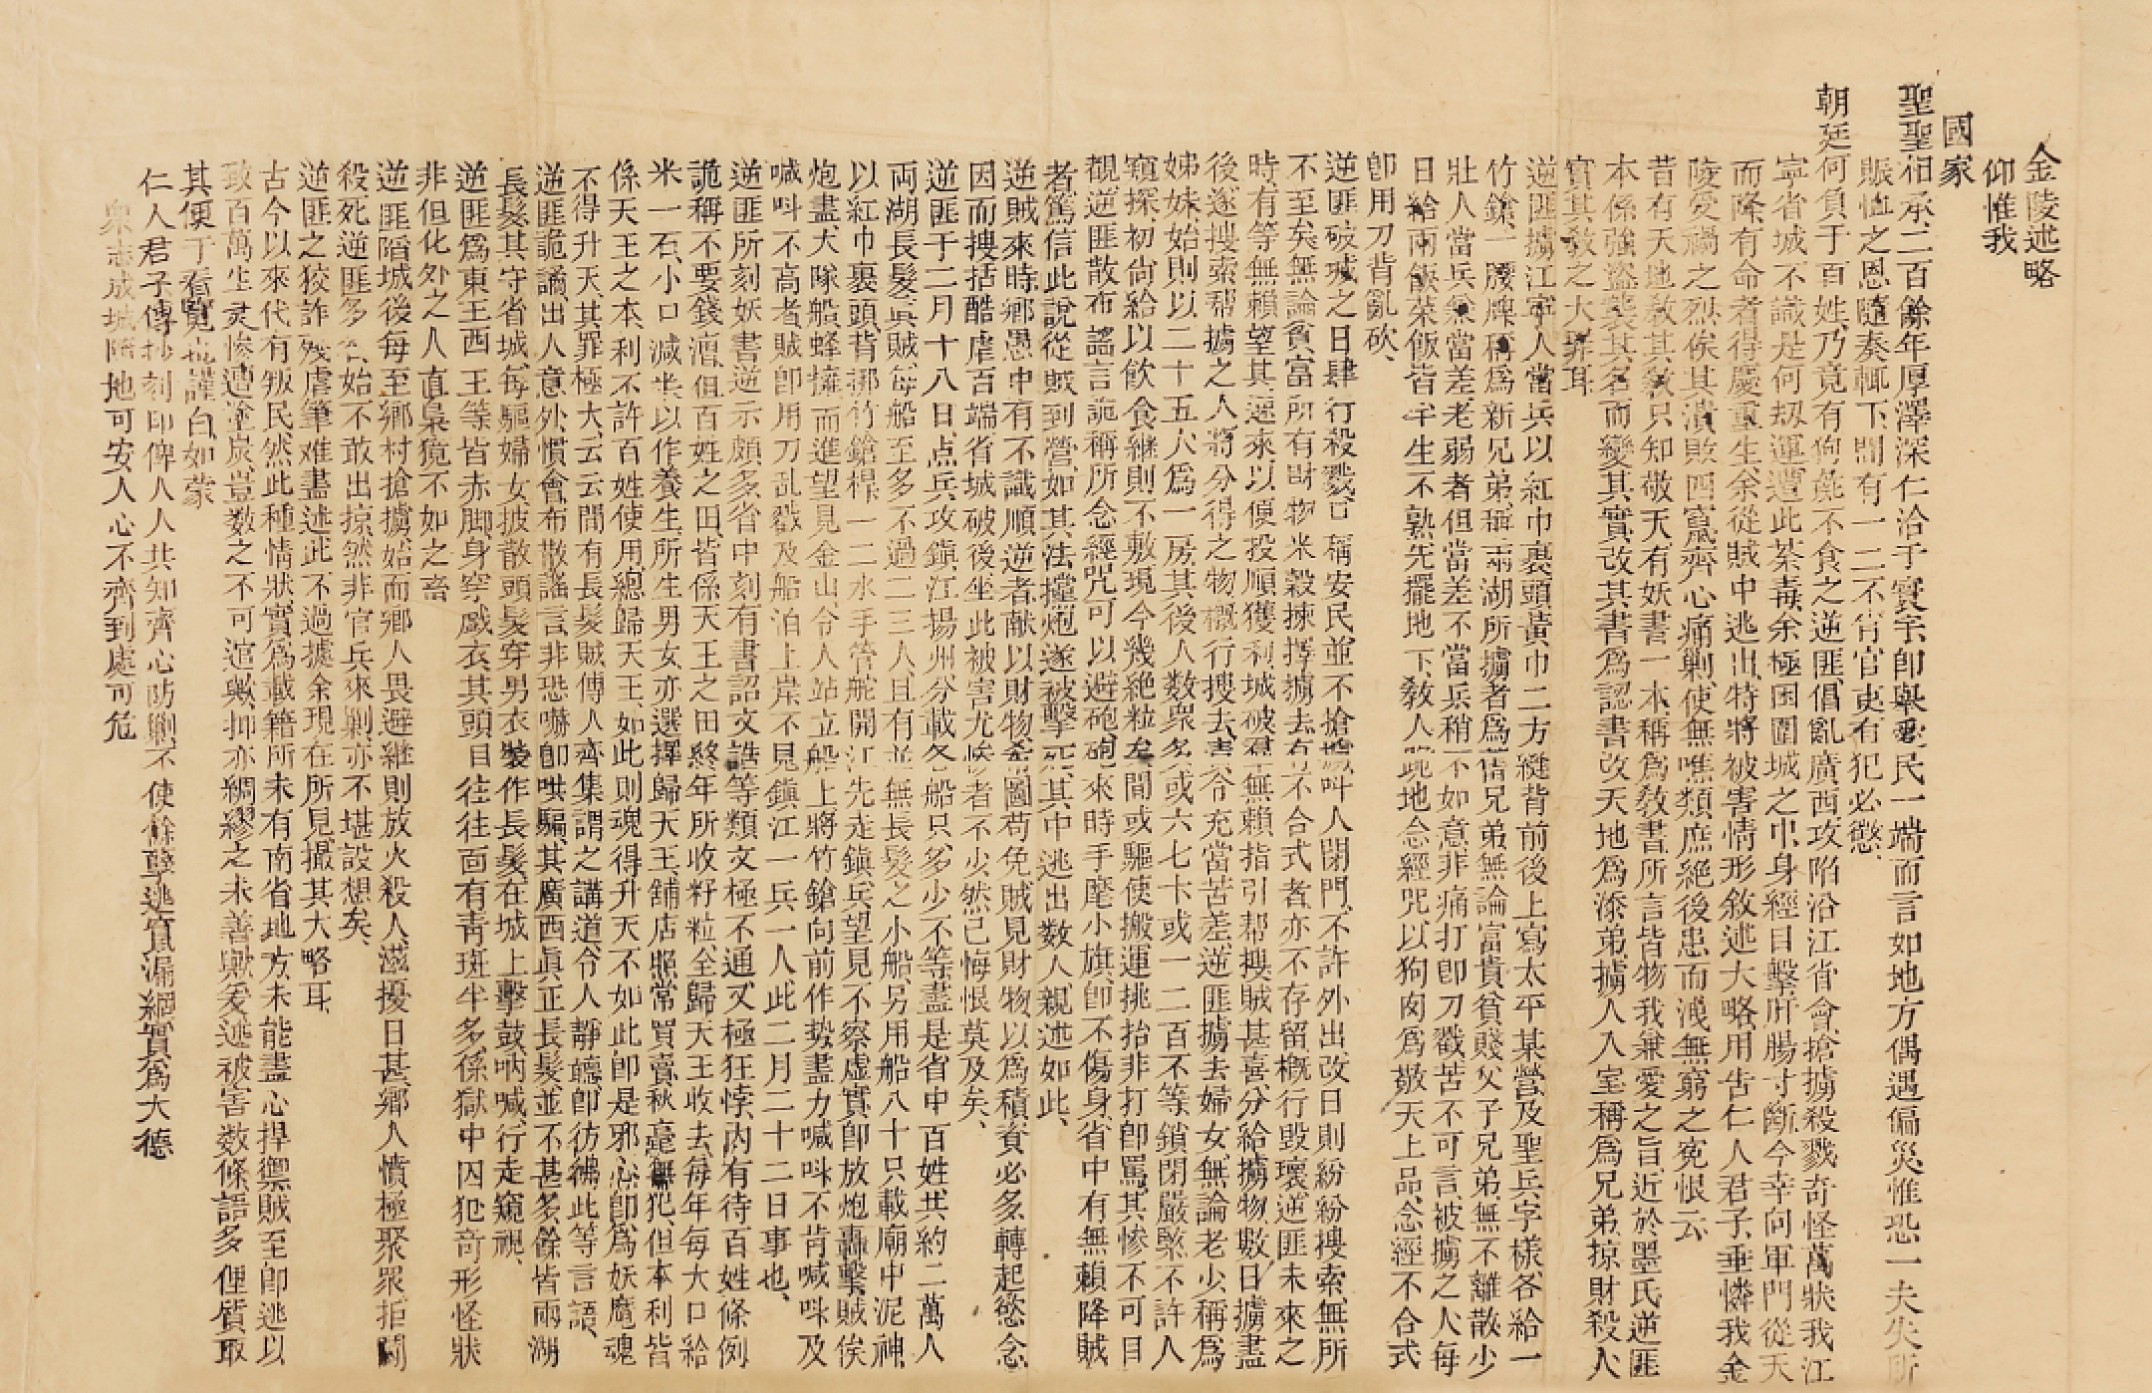 金陵述略
仰惟我
國家
聖聖相承二百餘年厚澤深仁洽于寰宇卽與愛民一端而言如地方偶遇偏災惟恐一夫失所
賑恤之恩隨奏輒下間有一二不肖官吏有犯必懲
朝廷何負于百姓乃竟有狗彘不食之逆匪倡亂廣西攻陷沿江省會搶擄殺戮奇怪萬狀我江
寧省城不識是何刼運遭此荼毒余極困圍城之中身經目擊肝腸寸斷今幸向軍門從天
而降有命者得慶重生余從賊中逃出特將被害情形敘述大略用告仁人君子垂憐我金
陵受禍之烈俟其潰敗四竄齊心痛剿使無噍類庶絶後患而洩無窮之寃恨云
昔有天地敎其敎只知敬天有妖書一本稱爲敎書所言皆物我兼愛之旨近於墨氏逆匪
本係強盜襲其名而變其實改其書爲認書改天地爲添弟擄人入室稱爲兄弟掠財殺人
實其敎之大罪耳
逆匪擄江寧人當兵以紅巾裹頭黃巾二方縫背前後上寫太平某營及聖兵字樣各給一
竹鎗一腰牌稱爲新兄弟稱兩湖所擄者爲舊兄弟無論富貴貧賤父子兄弟無不離散少
壯人當兵兼當差老弱者但當差不當兵稍不如意非痛打卽刀戳苦不可言被擄之人每
日給兩飯菜飯皆半生不熟先擺地下敎人跪地念經咒以狗肉爲敬天上品念經不合式
卽用刀背亂砍
逆匪破城之日肆行殺戮口稱安民並不搶擄叫人閉門不許外出改日則紛紛搜索無所
不至矣無論貧富所有財物米穀揀擇擄去有不合式者亦不存留概行毀壞逆匪未來之
時有等無賴望其速來以便投順獲利城破君無賴指引帮搜賊甚喜分給擄物數日擄盡
後遂搜索帮擄之人將分得之物概行搜去責令充當苦差逆匪擄去婦女無論老少稱爲
姊妹始則以二十五人爲一房其後人数衆多或六七十或一二百不等鎖閉嚴緊不許人
窺探初尙給以飮食繼則不敷現今幾絶粒矣間或驅使搬運挑抬非打卽罵其慘不可目
覩逆匪散布謠言詭稱所念經咒可以避砲砲來時手麾小旗卽不傷身省中有無賴降賊
者篤信此說從賊到營如其法擋炮遂被擊死其中逃出数人親述如此
逆賊來時鄉愚中有不識順逆者献以財物希圖苟免賊見財物以爲積資必多轉起慾念
因而搜括酷虐百端省城破後坐此被害尤慘者不少然已悔恨莫及矣
逆匪于二月十八日点兵攻鎭江揚州分載各船只多少不等盡是省中百姓共約二萬人
両湖長髮眞賊每船至多不過二三人且有並無長髮之小船另用船八十只載廟中泥神
以紅巾裹頭背挪竹鎗桿一二水手管舵開江先走鎭兵望見不察虛實卽放炮轟擊賊俟
炮盡大隊船蜂擁而進望見金山令人站立船上將竹鎗向前作势盡力喊呌不肯喊呌及
喊呌不高者賊卽用刀乱戮及船泊上岸不見鎭江一兵一人此二月二十二日事也
逆匪所刻妖書逆示頗多省中刻有書詔文誥等類文極不通又極狂悖內有待百姓條例
詭稱不要錢漕但百姓之田皆係天王之田終年所收籽粒全歸天王收去每年每大口給
米一石小口減半以作養生所生男女亦選擇歸天王舖店照常買賣秋毫無犯但本利皆
係天王之本利不許百姓使用總歸天王如此則魂得升天不如此卽是邪心卽爲妖魔魂
不得升天其罪極大云云間有長髮賊傳人齊集謂之講道令人靜聽卽彷彿此等言語
逆匪詭譎出人意外慣會布散謠言非恐嚇卽哄騙其廣西眞正長髮並不甚多餘皆兩湖
長髮其守省城每驅婦女披散頭髮穿男衣裝作長髮在城上擊鼓吶喊行走窺視
逆匪爲東王西王等皆赤脚身穿戲衣其頭目往往面有靑斑半多係獄中囚犯奇形怪狀
非但化外之人直梟獍不如之畜
逆匪陷城後每至鄉村搶擄始而鄉人畏避繼則放火殺人滋擾日甚鄉人憤極聚眾拒鬭
殺死逆匪多人始不敢出掠然非官兵來剿亦不堪設想矣
逆匪之狡詐殘虐筆难盡述此不過據余現在所見撮其大略耳
古今以來代有叛民然此種情狀實爲載籍所未有南省地方未能盡心捍禦賊至卽逃以
致百萬生灵慘遭塗炭豈数之不可逭歟抑亦綢繆之未善歟爰述被害数條語多俚質取
其便于看覽也謹白如蒙
仁人君子傳抄刻印俾人人共知齊心防剿不使餘孽逃竄漏網實爲大德
衆志成城隨地可安人心不齊到處可危